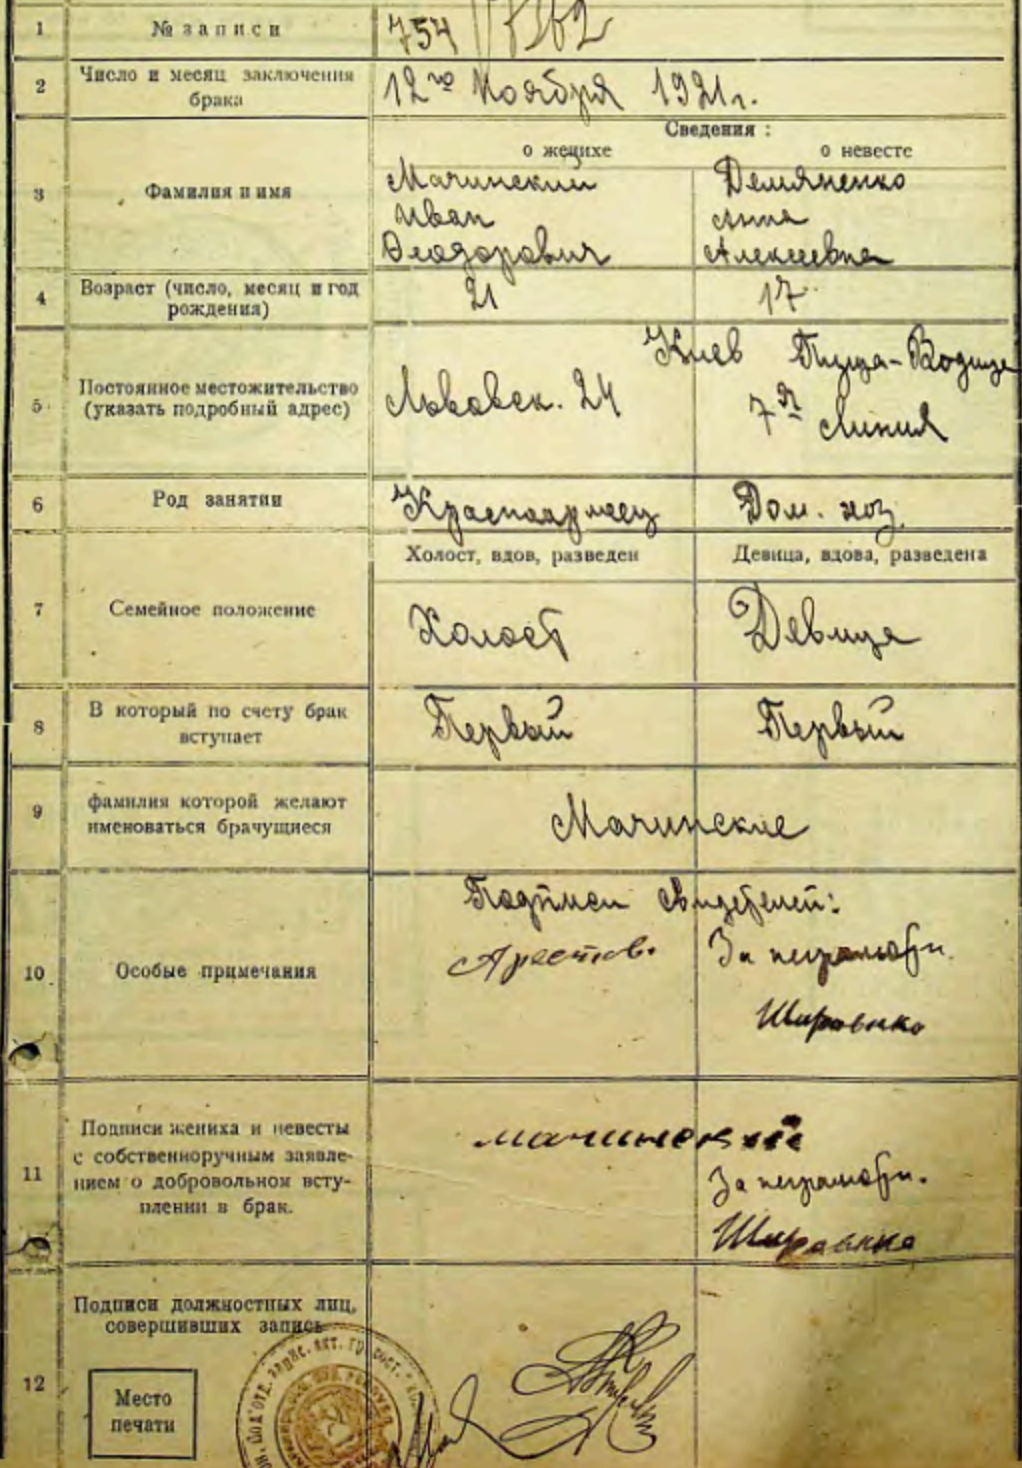 1 № записи 754
2 Число и месяц заключения брака 12го Ноября 1921г.
Сведения :
о женихе о невесте
3 Фамилия и имя
Мачинский Демяненко
Иван Анна
Феодорович Алексеевна
4 Возраст (число, месяц и год рождения) 21 17
5 Постоянное местожительство (указать подробный адрес)
Киев Пуща-Водица
Львовск. 24 7я Линия
6 Род занятии Красноармеец Дом. хоз.
Холост, вдов, разведен Девица, вдова, разведена
7 Семейное положение Холост Девица
8 В который по счету брак вступает Первый Первый
9 фамилия которой желают именоваться брачущиеся Мачинские
10 Особые примечания
Подписи свидетелей:
Арестов. За неграмотн.
11 Подписи жениха и невесты
с собственноручным заявле-
нием о добровольном всту-
плении в брак.
Мачинский
За неграмотн.
12 Подписи должностных лиц,
совершивших запись
Место
печати